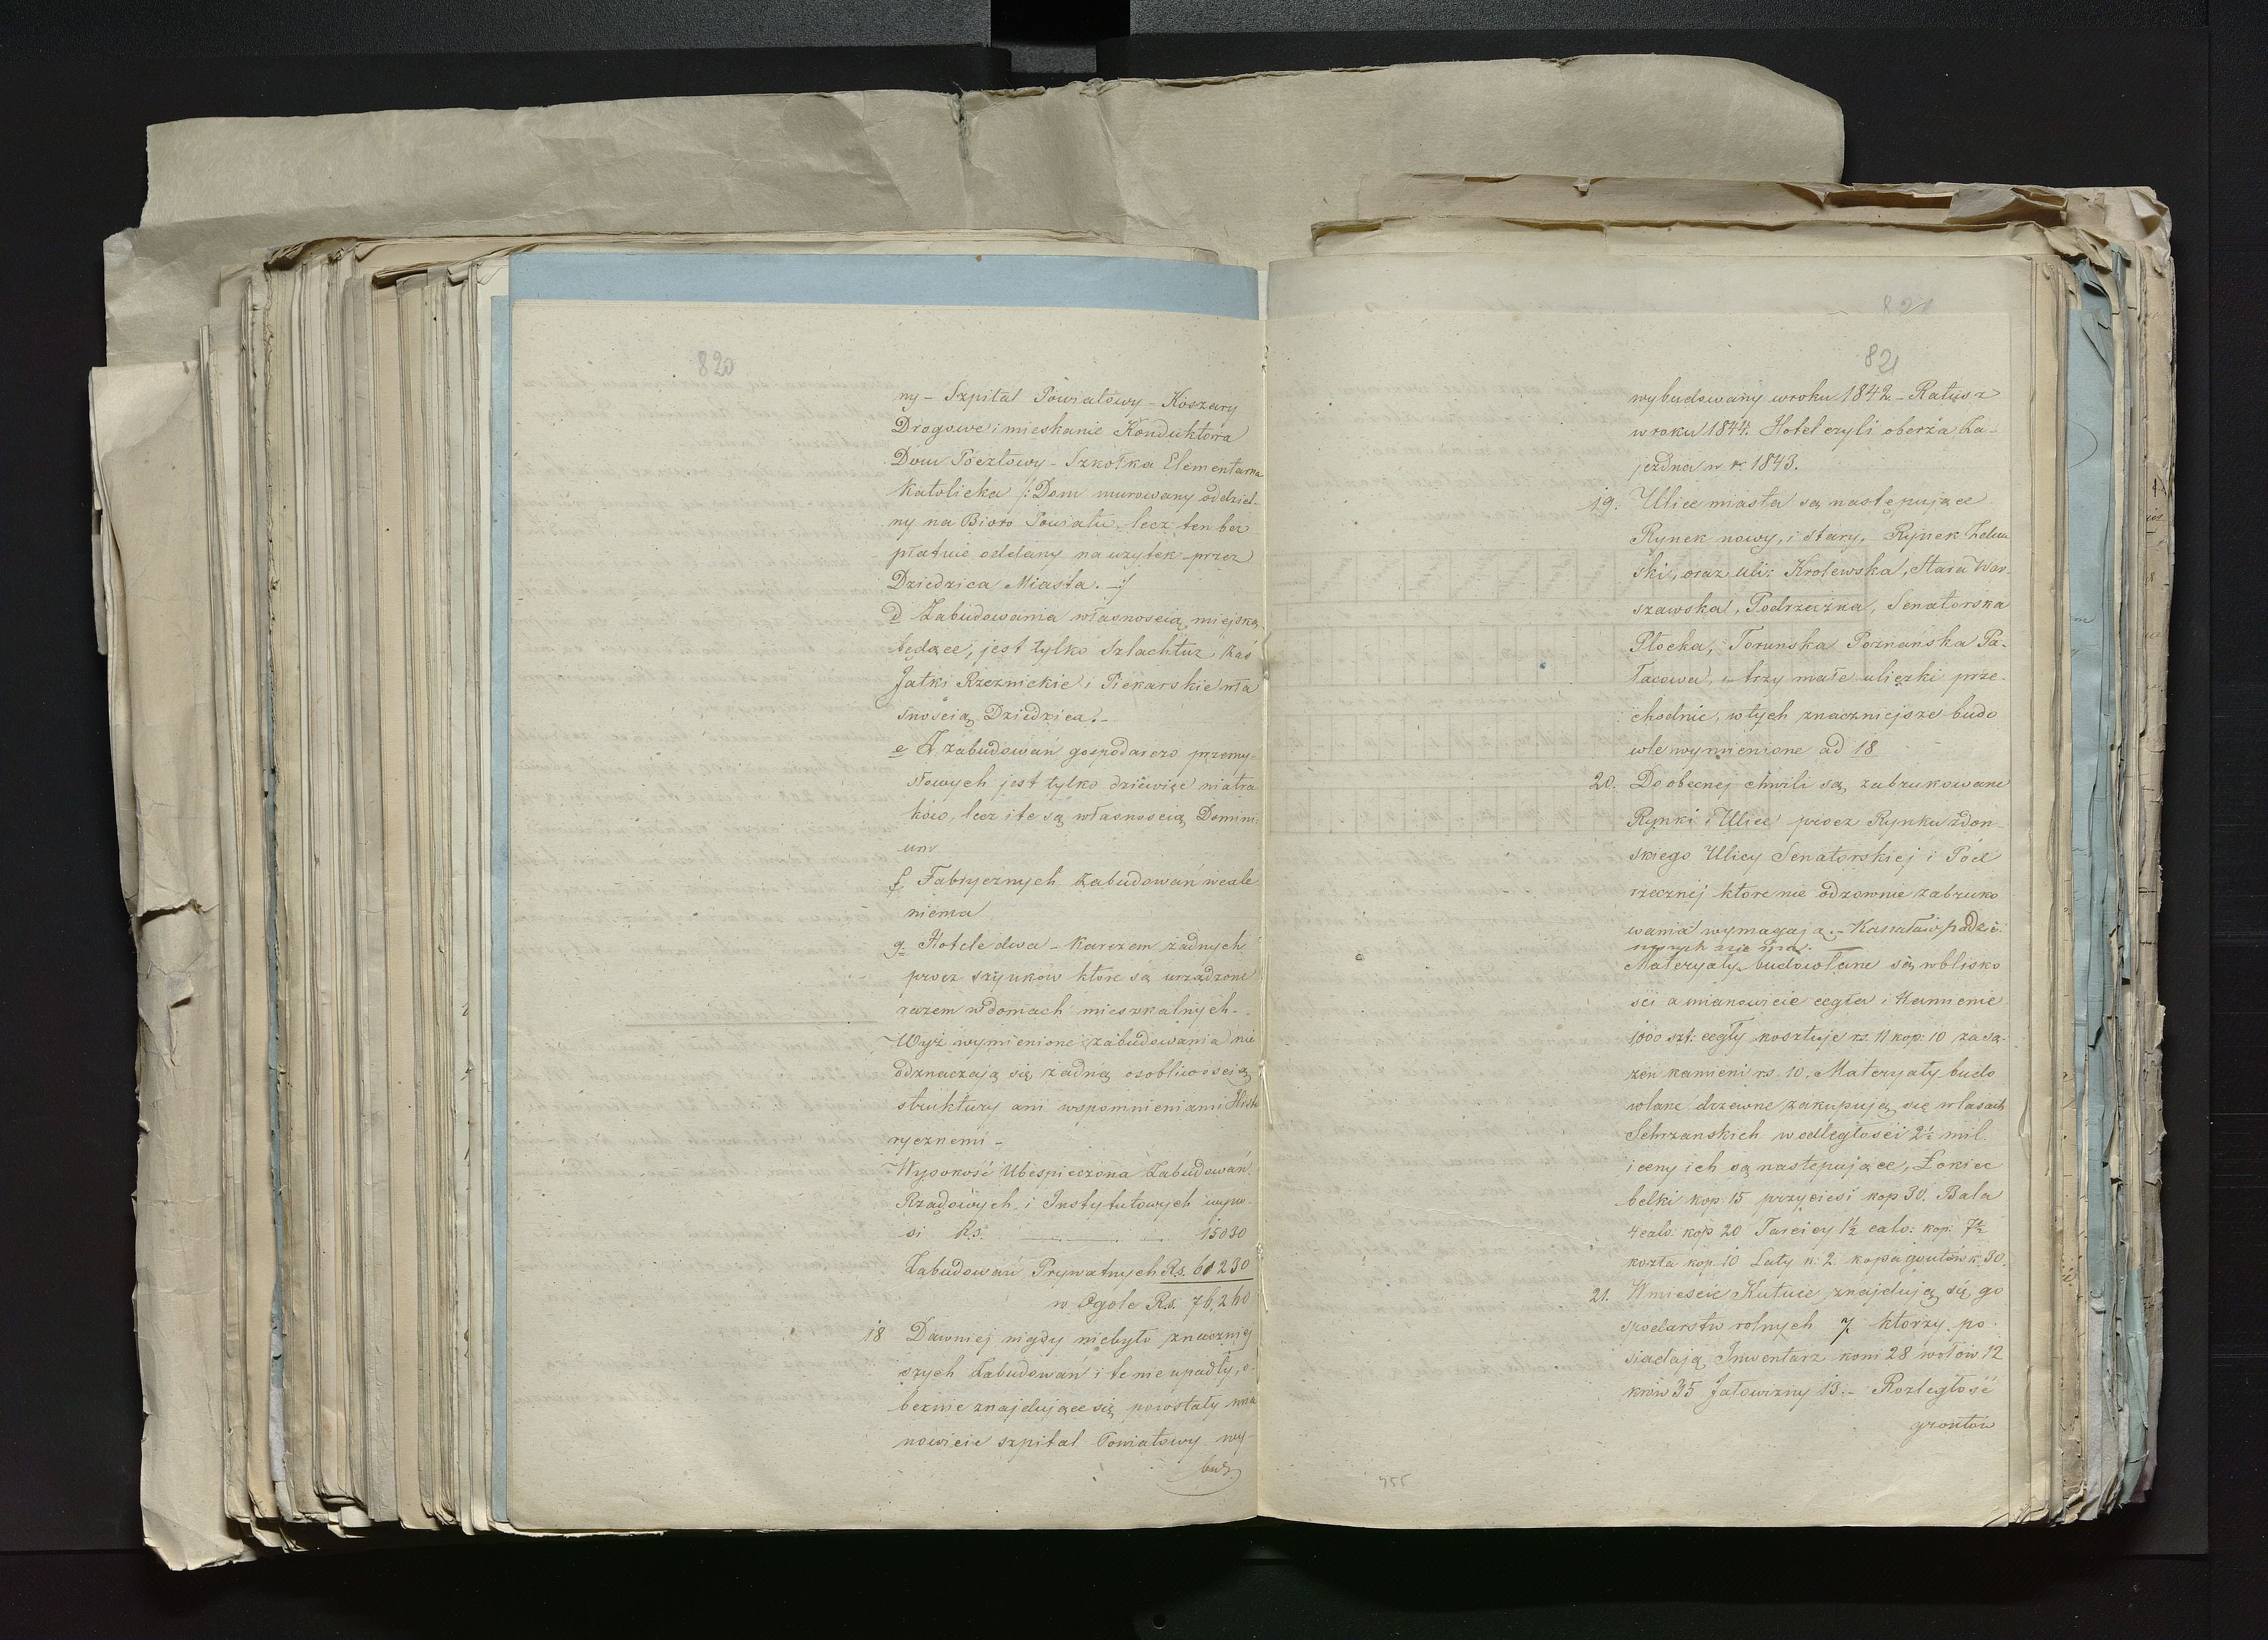 820
ny – Szpital Powiatowy – Koszary
Drogowe i mieskanie Konduktora
Dom Pocztowy – Szkołka Elementarna
Katolicka /: Dom murowany oddziel-
ny na Bioro Powiatu, lecz ten bez
płatnie oddany na uzytek przez
Dziedzica Miasta. – :/
d Zabudowania własnoscią miejską
będące, jest tylko Szlachtuz, zas
Jatki Rzeznickie i Piekarskie wła
snoscią Dziedzica. –
e Z zabudowań gospodarczo przemy-
słowych jest tylko dziewięc wiatra
ków, lecz i te są własnoscią Domini-
um
f Fabrycznych zabudowań wcale
niema
g Hotele dwa – Karczem żadnych
procz szynkow ktore są urządzone
razem w domach mieszkalnych. –
Wyż wymienione zabudowania nie
odznaczają się zadną osobliwoscią
struktury ani wspomnieniami Histo
rycznemi –
Wysokość Ubespieczona Zabudowań
Rządowych i Instytutowych wyno-
si Rs. 15030
Zabudowań Prywatnych Rs. 61230
w Ogole Rs. 76,260
18 Dawniej nigdy niebyło znaczniej
szych Zabudowań i te nie upadły, o-
becnie znajdujące się powstały mia
nowicie szpital Powiatowy wy-
bud.
821
821
wybudowany w roku 1842 – Ratusz
w roku 1844. Hotel czyli oberża Za-
jezdna w r. 1843.
19. Ulice miasta są następujące
Rynek nowy, i stary, Rynek Zdun
ski, oraz uli: Krolewska, Stara War-
szawska, Podrzeczna, Senatorska
Płocka, Torunska Poznanska Pa-
łacowa, i trzy małe uliczki prze-
chodnie, w tych znaczniejsze budo
wle wymienione ad 18
20. Do obecnej chwili są zabrukowane
Rynki i Ulice procz Rynku zdun-
skiego Ulicy Senatorskiej i Pod
rzecznej ktore nie odzownie zabruko
wania wymagają. – Kanałów podzie
mnych nie ma. –
Materyały budowlane są w blisko
sci a mianowicie cegła i Kamienie
1000 szt: cegły kosztuje rs. 11 kop: 10 za są-
zen kamieni rs. 10, Materyały budo
wlane drzewne zakupują się w lasach
w odległosci 2½ mil.
i ceny ich są następujące, Łokiec
belki kop: 15 przyciesi kop 30. Bala
4 calo: kop 20 Tarcicy 1½ calo: kop: 7½
kozła kop. 10 Łaty k. 2. kopa gontów k. 30.
21. W miescie Kutnie znajdują się go
spodarstw rolnych 7 ktorzy po-
siadają Inwentarz koni 28 wołow 12
krów 35 Jałowizny 13. – Rozległość
grontów
455